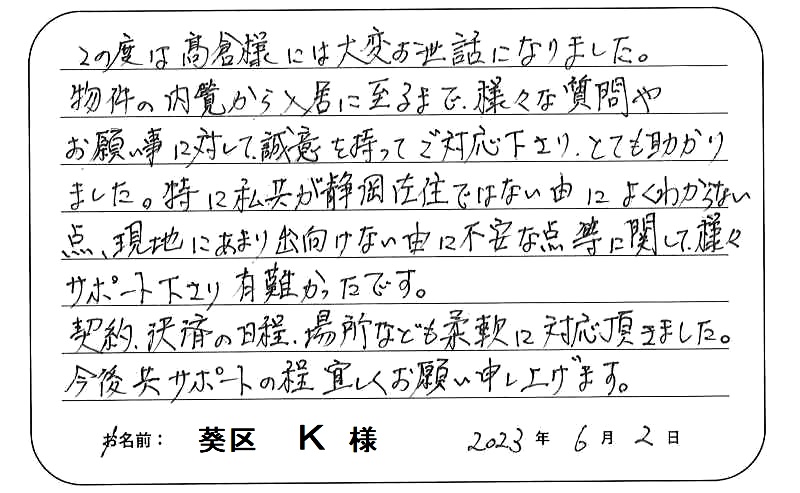 この度は髙倉様には大変お世話になりました。
物件の内覧から入居に至るまで、様々な質問や
お願い事に対して、誠意を持ってご対応下さり、とても助かり
ました。特に私共が静岡在住ではない由によくわからない
点、現地にあまり出向けない由に不安な点等に関して、種々
サポート下さり有難かったです。
契約、決済の日程、場所なども柔軟に対応頂きました。
今後共サポートの程宜しくお願い申し上げます。
お名前: 葵区 K 様 2023年6月2日